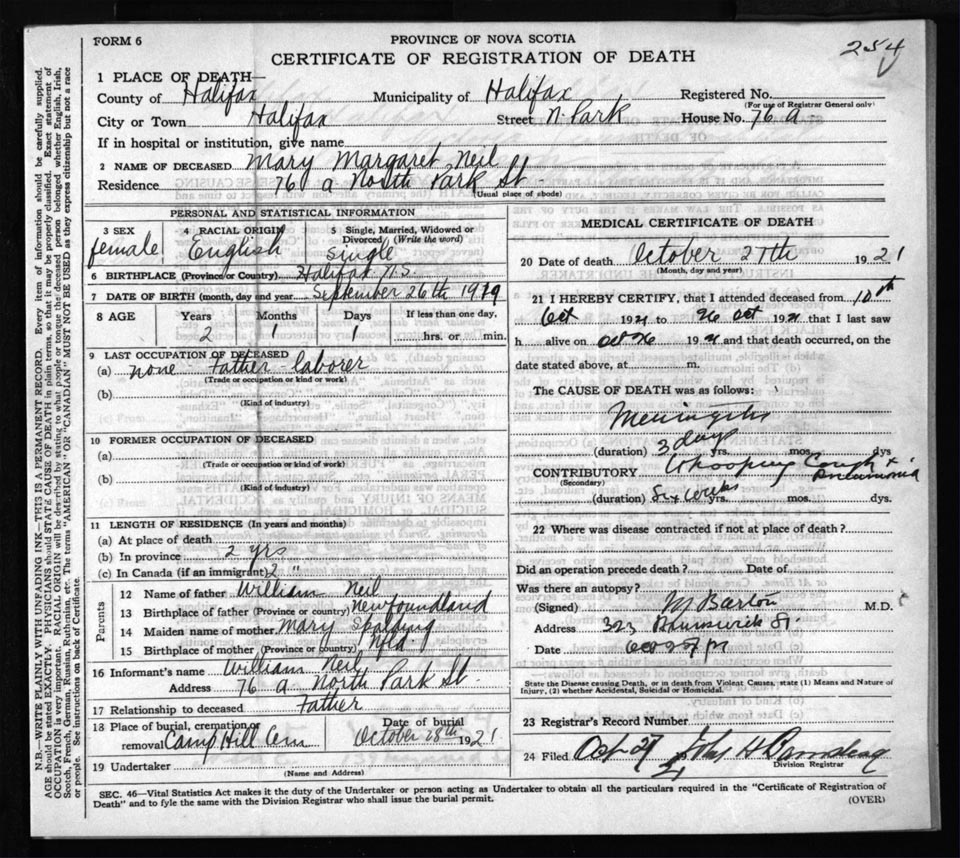 FORM 6
PROVINCE OF NOVA SCOTIA
254
CERTIFICATE OF REGISTRATION OF DEATH
1 PLACE OF DEATH—
County of Halifax Municipality of Halifax Registered No.
(For use of Registrar General only)
City or Town Halifax Street N. Park House No. 76 a
If in hospital or institution, give name
2 NAME OF DECEASED Mary Margaret Neil
Residence 76 a North Park St.
(Usual place of abode)
PERSONAL AND STATISTICAL INFORMATION
3 SEX 4 RACIAL ORIGIN 5 Single, Married, Widowed or Divorced (Write the word)
female English Single
6 BIRTHPLACE (Province or Country) Halifax N.S.
7 DATE OF BIRTH (month, day and year September 26th 1919
8 AGE Years Months Days If less than one day,
2 1 1 hrs. or min.
9 LAST OCCUPATION OF DECEASED
(a) none Father laborer
(Trade or occupation or kind or work)
(b)
(Kind of industry)
10 FORMER OCCUPATION OF DECEASED
(a)
(Trade or occupation or kind of work)
(b)
(Kind of industry)
11 LENGTH OF RESIDENCE (In years and months)
(a) At place of death
(b) In province 2 yrs
(c) In Canada (if an immigrant) 2 "
Parents
12 Name of father William Neil
13 Birthplace of father (Province or country) Newfoundland
14 Maiden name of mother Mary Spalding
15 Birthplace of mother (Province or country) Nfld
16 Informant's name William Neil
Address 76 a North Park St.
17 Relationship to deceased Father
18 Place of burial, cremation or removal Camp Hill Cem Date of burial October 28th 1921
19 Undertaker
(Name and Address)
MEDICAL CERTIFICATE OF DEATH
20 Date of death October 27th 1921
(Month, day and year)
21 I HEREBY CERTIFY, that I attended deceased from 10th
Oct 1921 to 26 Oct 1921 that I last saw
h alive on Oct 26 1921 and that death occurred, on the
date stated above, at m.
The CAUSE OF DEATH was as follows:
Meningitis
(duration) 3 days yrs. mos. dys
CONTRIBUTORY Whooping Cough + Pneumonia
(Secondary)
(duration) Six weeks yrs. mos. dys.
22 Where was disease contracted if not at place of death?
Did an operation precede death? Date of
Was there an autopsy?
(Signed) M Barton M.D.
Address 323 Brunswick St.
Date Oct 27
State the Disease causing Death, or in death from Violent Causes, state (1) Means and Nature of
Injury, (2) whether Accidental, Suicidal or Homicidal.
23 Registrar's Record Number
24 Filed Oct 27 21 John H
Division Registrar
SEC. 46—Vital Statistics Act makes it the duty of the Undertaker or person acting as Undertaker to obtain all the particulars required in the "Certificate of Registration of
Death" and to fyle the same with the Division Registrar who shall issue the burial permit.
(OVER)
N.B.—WRITE PLAINLY WITH UNFADING INK—THIS IS A PERMANENT RECORD. Every item of information should be carefully supplied.
AGE should be stated EXACTLY. PHYSICIANS should STATE CAUSE OF DEATH in plain terms, so that it may be properly classified. Exact statement of
OCCUPATION is very important. RACIAL ORIGIN will be described by stating to what people or tongue the deceased person belonged, whether English, Irish,
Scotch, French, German, Russian, Ruthenian, etc. The terms "AMERICAN" OR "CANADIAN" MUST NOT BE USED as they express citizenship but not a race
or people. See instructions on back of Certificate.